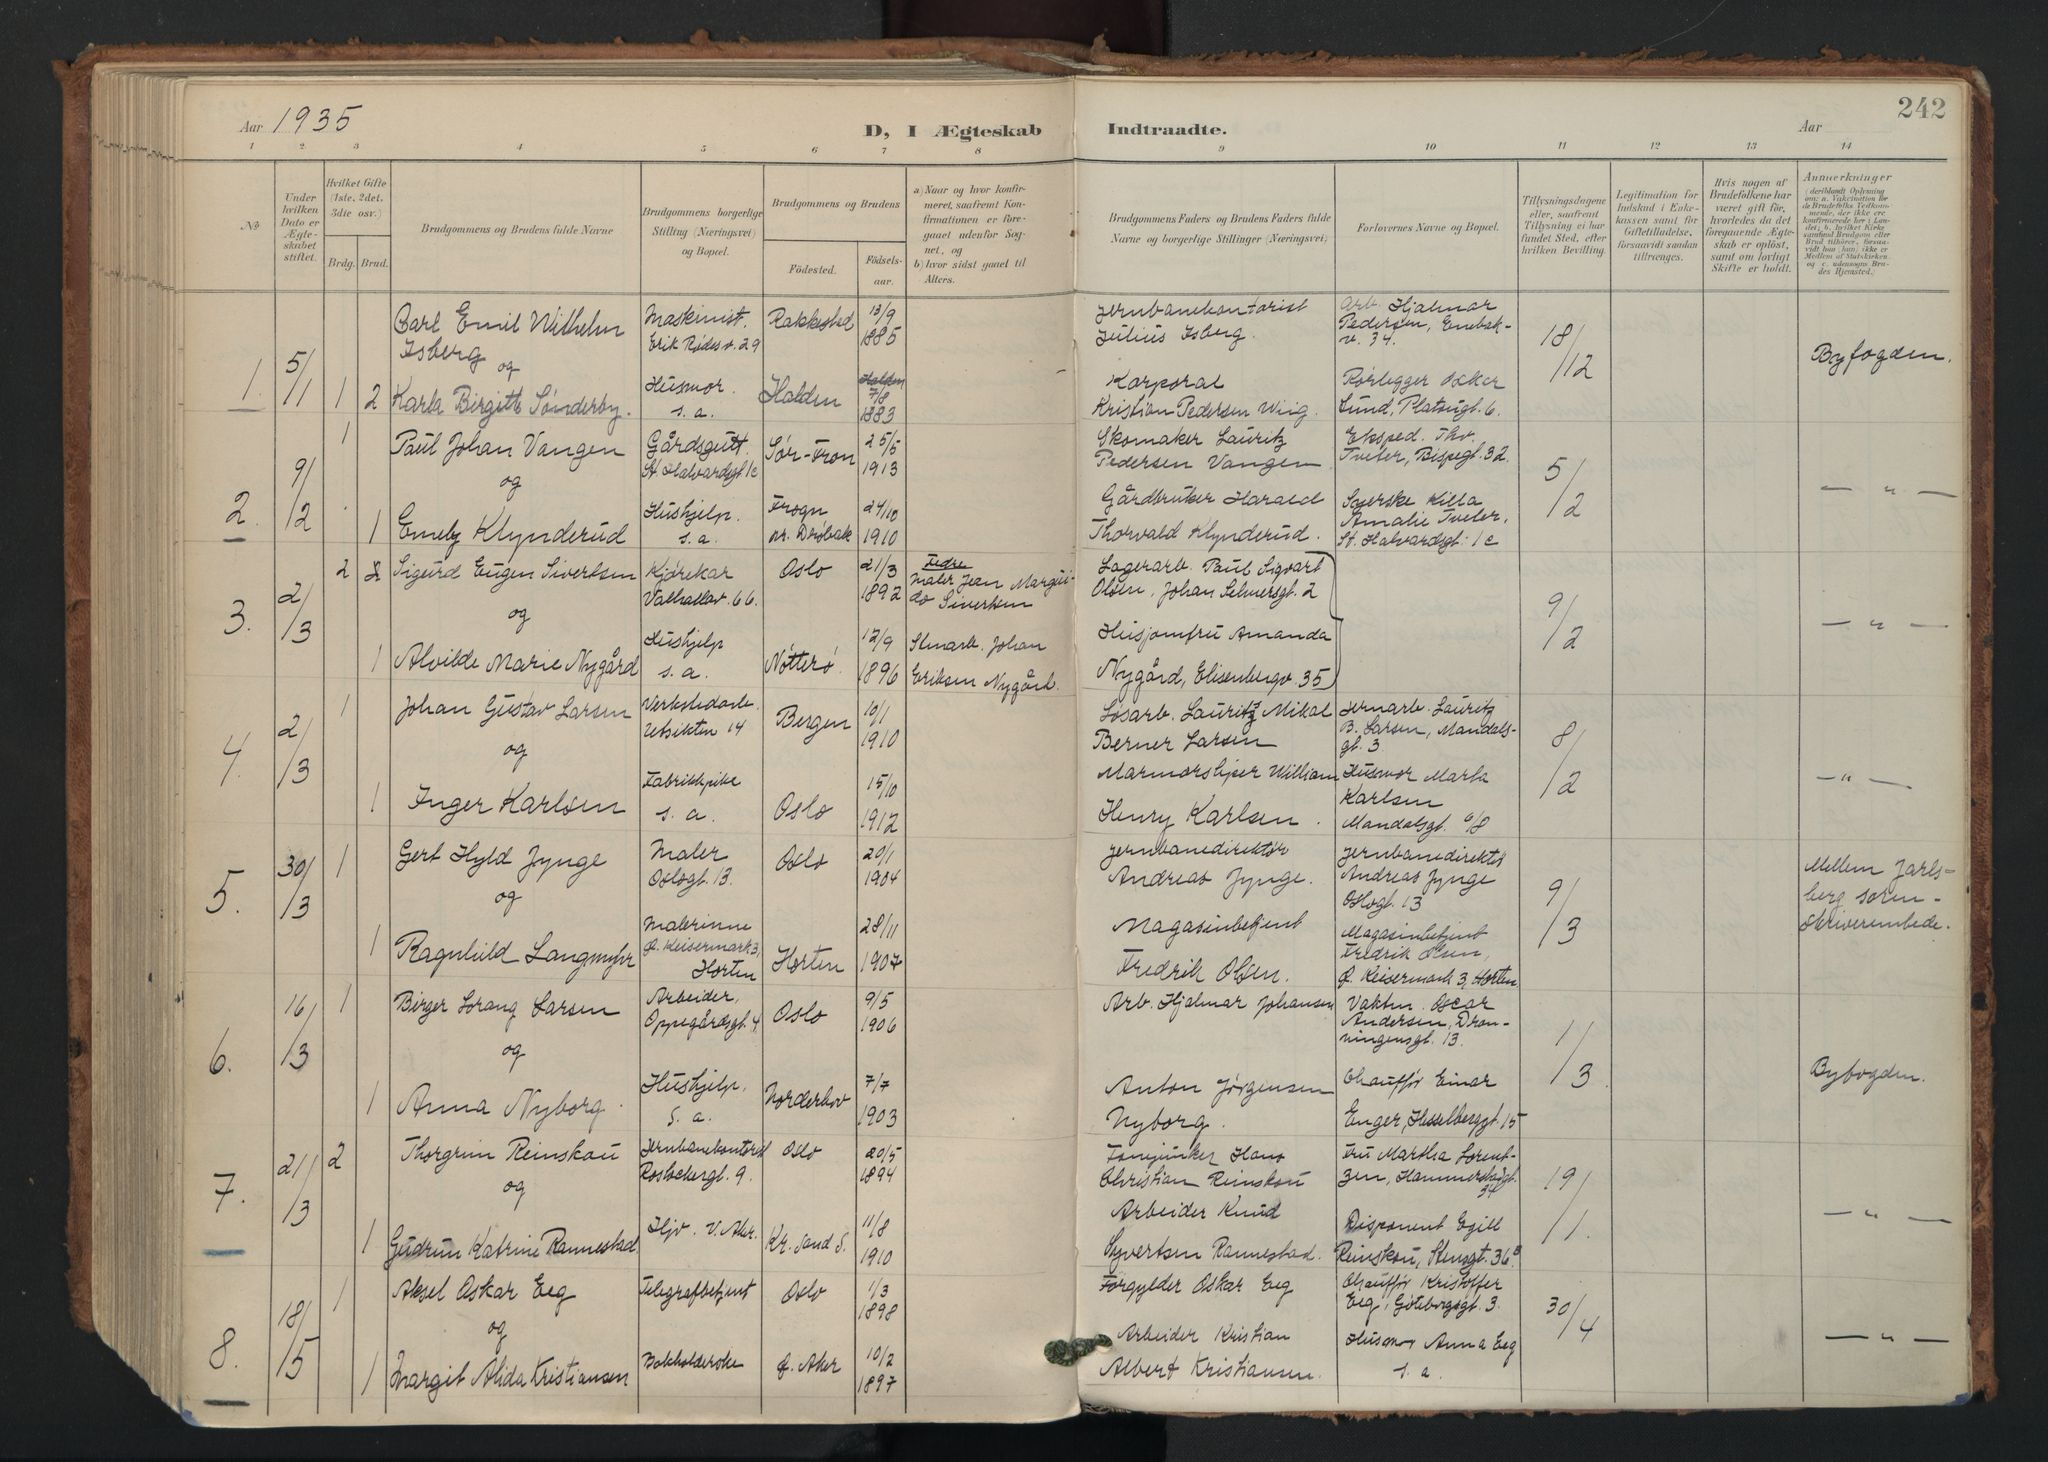 Aar 1935
D, I Ægteskab Indtraadte.
Aar
242
1 2 3 4 5 6 7 8 9 10 11 12 13 14
No
Under hvilken Dato er Ægteskabet stiftet.
Hvilket Gifte (1ste, 2det, 3die osv.)
Brdg. Brud.
Brudgommens og Brudens fulde Navne
Brudgommens borgerlige Stilling (Næringsvei) og Bopæl.
Brudgommens og Brudens
Födested.
Födselsaar.
a) Naar og hvor konfirmeret, saafremt Konfirmationen er foregaaet udenfor Sognet, og
b) hvor sidst gaaet til Alters.
Brudgommens Faders og Brudens Faders fulde Navne og borgerlige Stillinger (Næringsvei)
Forlovernes Navne og Bopæl.
Tillysningsdagene eller, saafremt Tillysning ei har fundet Sted, efter hvilken Bevilling.
Legitimation for Indskud i Enkekassen samt for Giftetilladelse, forsaavidt saadan tiltrænges.
Hvis nogen af Brudefolkene har været gift før, hvorledes da det foregaaende Ægteskab er oplöst, samt om lovligt Skifte er holdt.
Anmerkninger
1. 5/1 1 2
Carl Emil Wilhelm Isberg
og
Karla Birgitte Sønderby.
Maskinist. Erik Rødesv. 29
Husmor. s. a.
Rakkestad
Halden
13/9 1885
7/8 1883
Jernbanekontorist Julius Isberg.
Korporal Kristian Pedersen Wiig.
Arb. Hjalmar Pedersen, Enebakv. 34.
Rørlegger Oskar Lund, Platousgt. 6.
18/12
Byfogden.
2. 9/2 1 1
Paul Johan Vangen
og
Emely Klynderud
Gårdsgutt. St. Halvardsgt 1c
Hushjelp. s. a.
Sør-Fron
Frogn nr. Drøbak
25/5 1913
24/10 1910
Skomaker Lauritz Pedersen Vangen
Gårdbruker Harald Thorvald Klynderud.
Eksped. Thv. Tveter, Bispegt. 32
Amalie Tveter, St. Halvardsgt. 1c
5/2
— " —
3. 2/3 2 1
Sigurd Eugen Sivertsen
og
Alvilde Marie Nygård
Kjørekar Valhallav. 66.
Hushjelp s. a.
Oslo
Nøtterø.
21/3 1892
12/9 1896
Fedre
Maler Jean Sivertsen
Johan Eriksen Nygård.
Lagerarb. Paul Sigvart Olsen, Johan Selmersgt. 2
Husjomfru Amanda Nygård, Elisenbergv. 35
9/2
— " —
4. 2/3 1 1
Johan Gustav Larsen
og
Inger Karlsen
Verkstedarb. Utsikten 14
Fabrikkpike s. a.
Bergen
Oslo
10/1 1910
15/10 1912
Løsarb. Lauritz Mikal Berner Larsen
Marmorsliper William Henry Karlsen.
Jernarb. Lauritz B. Larsen, Mandalsgt. 3
Husmor Marta Karlsen Mandalsgt. 6/8
8/2
— " —
5. 30/3 1 1
Gert Hyld Jynge
og
Ragnhild Langmyhr
Maler Oslogt. 13.
Malerinne Ø. Keisermark 3, Horten
Oslo
Horten
20/1 1904
28/11 1907
Jernbanedirektør Andreas Jynge.
Magasinbetjent Fredrik Olsen.
Jernbanedirektør Andreas Jynge Oslogt. 13
Magasinbetjent Fredrik Olsen, Ø. Keisermark 3, Horten
9/3
Mellem Jarlsberg sorenskriverembede.
6. 16/3 1 1
Birger Lorang Larsen
og
Anna Nyborg.
Arbeider, Oppegårdsgt. 4
Hushjelp. s. a.
Oslo
Norderhov
9/5 1906
7/7 1903
Arb. Hjalmar Johansen
Anton Jørgensen Nyborg.
Vaktm. Oscar Andersen, Dronningensgt. 13.
Chauffør Einar Enger, Hesselbergsgt. 15
11/3
Byfogden.
7. 21/3 2 1
Thorgrim Reinskou
og
Gudrun Katrine Rannestad
Jernbanekontorist Rostockergt. 9.
Hjv. V. Aker.
Oslo
Kr. sand S.
20/5 1894
11/8 1910
Fanejunker Hans Christian Reinskou
Arbeider Knud Syvertsen Rannestad.
Fru Martha Lorentzen, Hammerstadgt. 34
Disponent Egill Reinskou, Stensgt. 36B.
19/1.
— " —
8. 18/5 1 1
Aksel Oskar Eeg
og
Margit Alida Kristiansen
Telegrafbetjent
Bokholderske
Oslo
Ø. Aker
1/3 1898
10/2 1897
Forgylder Oskar Eeg
Arbeider Kristian Albert Kristiansen.
Chauffør Kristoffer Eeg, Göteborggt. 3.
Husmor Anna Eeg s. a.
30/4
— " —